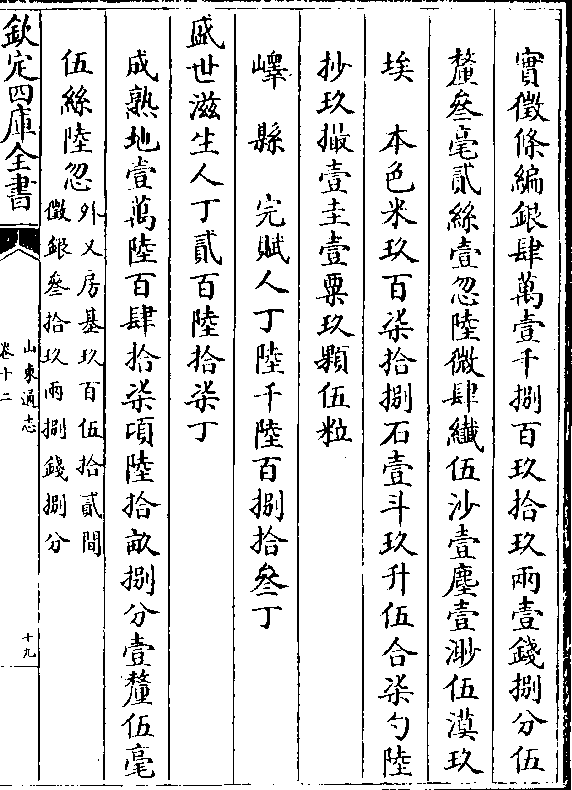 實徵條編銀肆萬壹千捌百玖拾玖兩壹錢捌分伍
釐叄毫貳絲壹忽陸微肆纖伍沙壹塵壹渺伍漠玖
埃　本色米玖百柒拾捌石壹斗玖升伍合柒勺陸
抄玖撮壹圭壹粟玖顆伍粒
嶧縣　完賦人丁陸千陸百捌拾叄丁
盛世滋生人丁貳百陸拾柒丁
成熟地壹萬陸百肆拾柒頃陸拾畝捌分壹釐伍毫
伍絲陸忽
外又房基玖百伍拾貳間
徵銀叄拾玖兩捌錢捌分
欽定四庫全書
山東通志
卷十二
十九